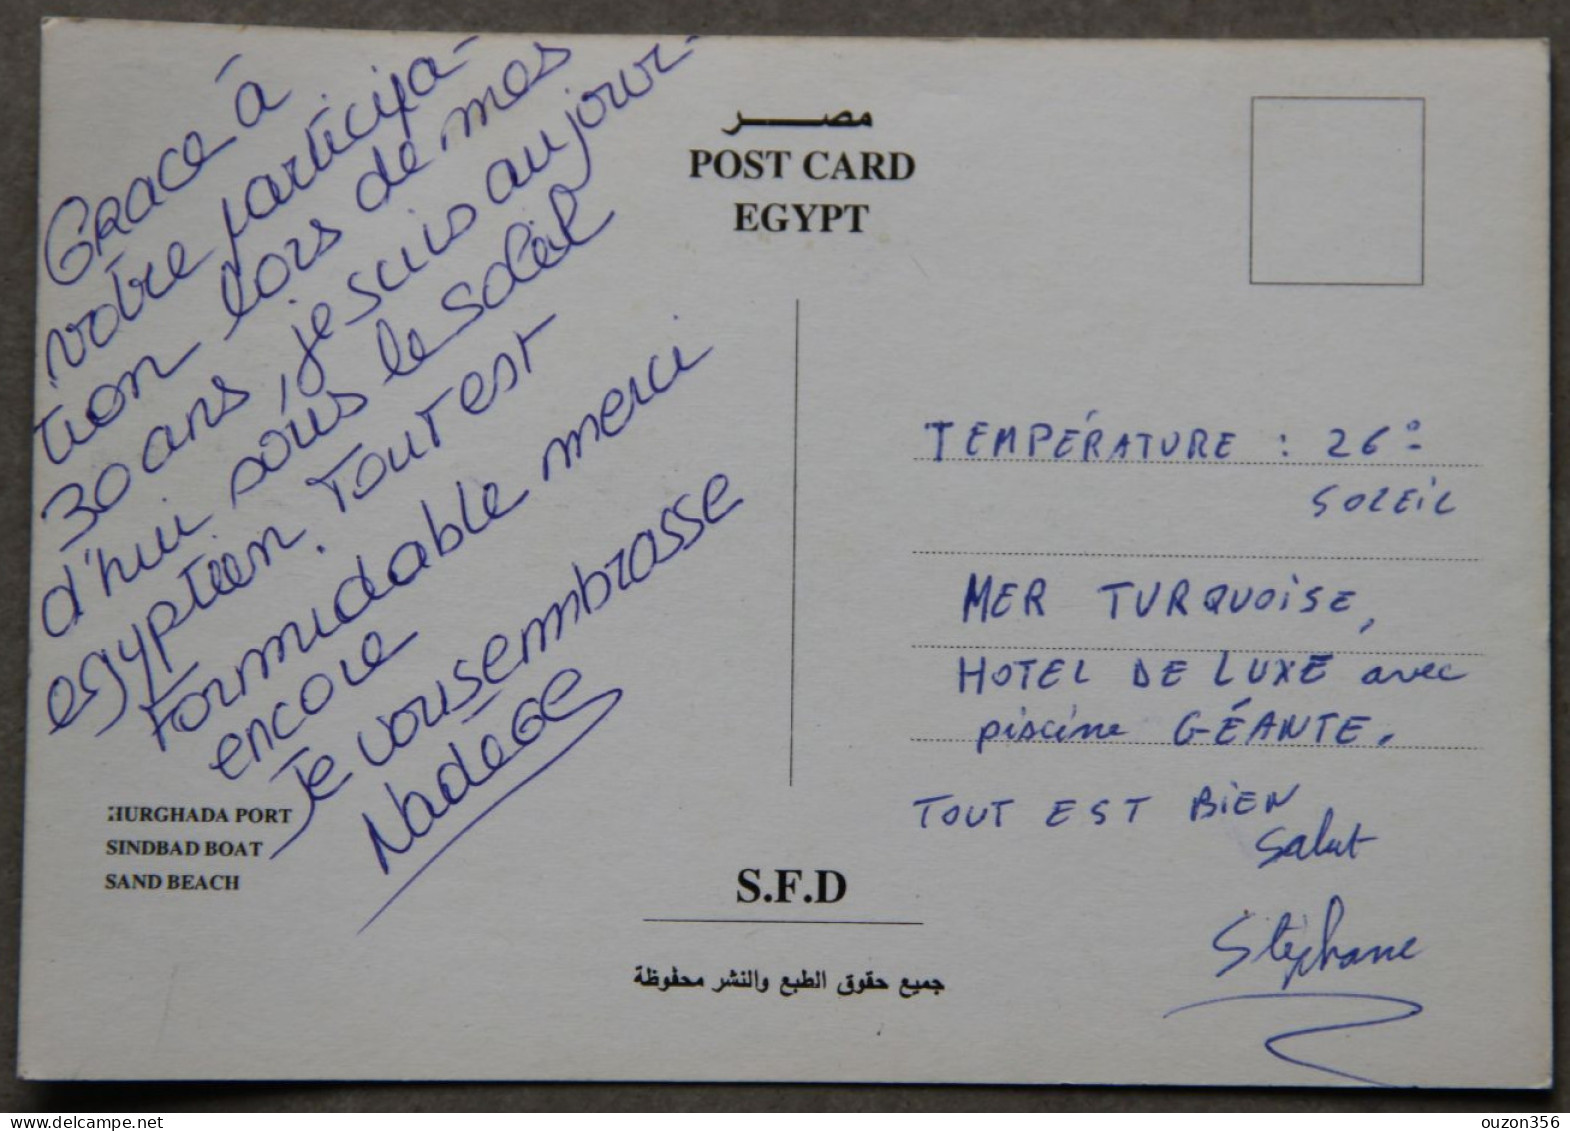 Grace à
votre participa-
tion lors de mes
30 ans, je suis aujour-
d'hui sous le soleil
egyptien. Tout est
Formidable merci
encore
Je vous embrasse
Nadege
HURGHADA PORT
SINDBAD BOAT
SAND BEACH
مصر
POST CARD
EGYPT
S.F.D
جميع حقوق الطبع والنشر محفوظة
TEMPÉRATURE : 26°
SOLEIL
MER TURQUOISE,
HOTEL DE LUXE avec
piscine GÉANTE.
TOUT EST BIEN
Salut
Stéphane
ouzon356